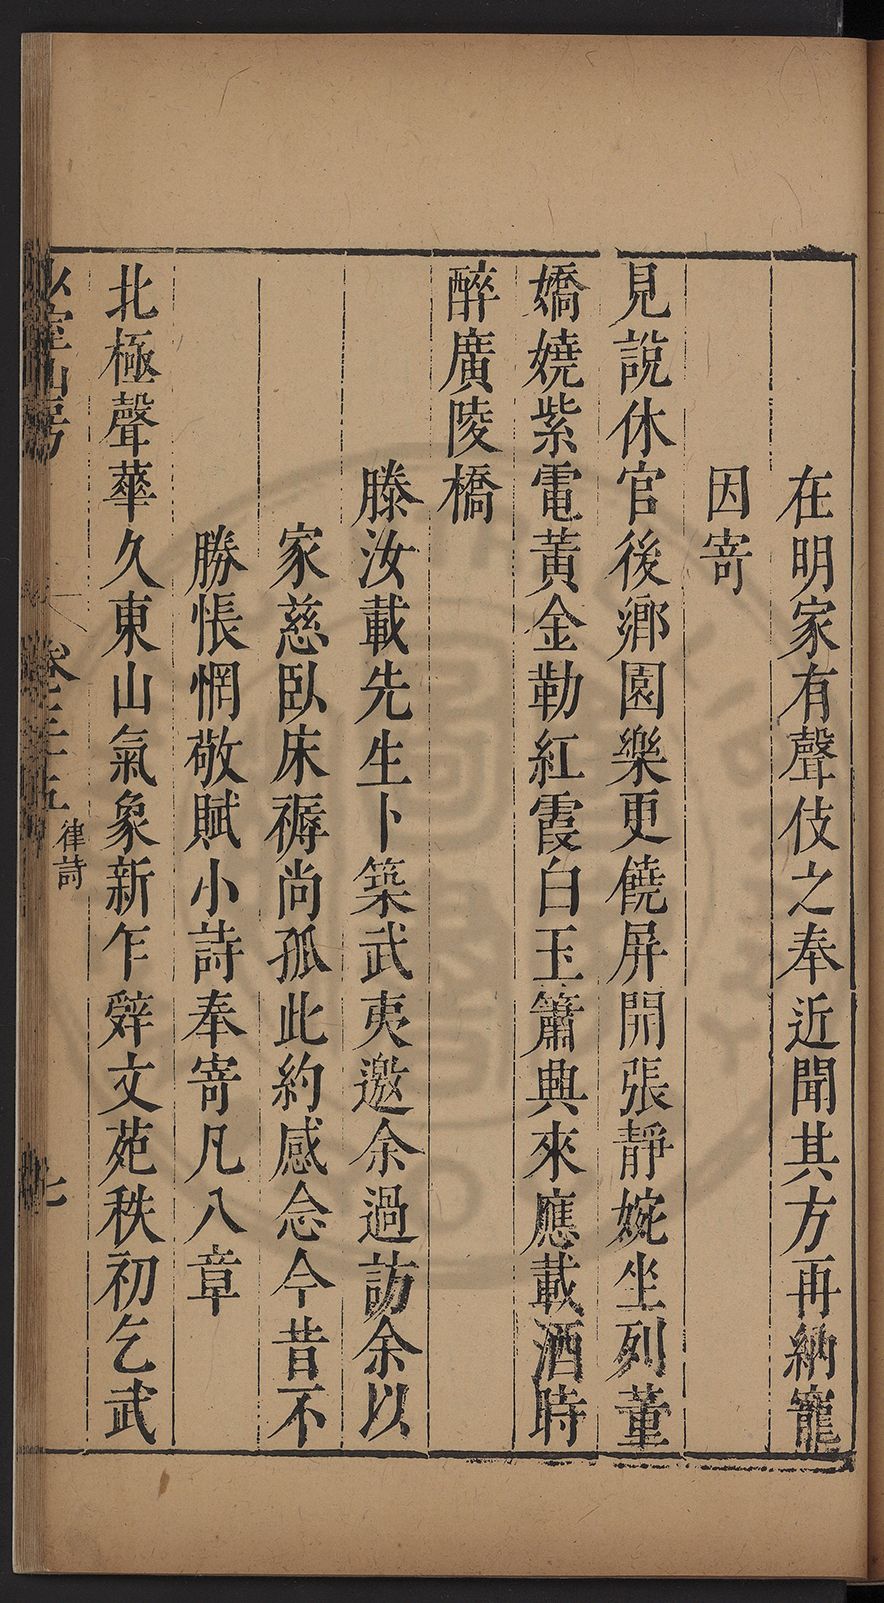 在明家有聲伎之奉近聞其方再納寵
因寄
見說休官後鄉園樂更饒屏開張靜婉坐列董
嬌嬈紫電黃金勒紅霞白玉簫興來應載酒時
醉廣陵橋
滕汝載先生卜築武夷邀余過訪余以
家慈臥床褥尚孤此約感念今昔不
勝悵惘敬賦小詩奉寄凡八章
北極聲華久東山氣象新乍辭文苑秩初乞武
室山房
卷三十五
律詩
七